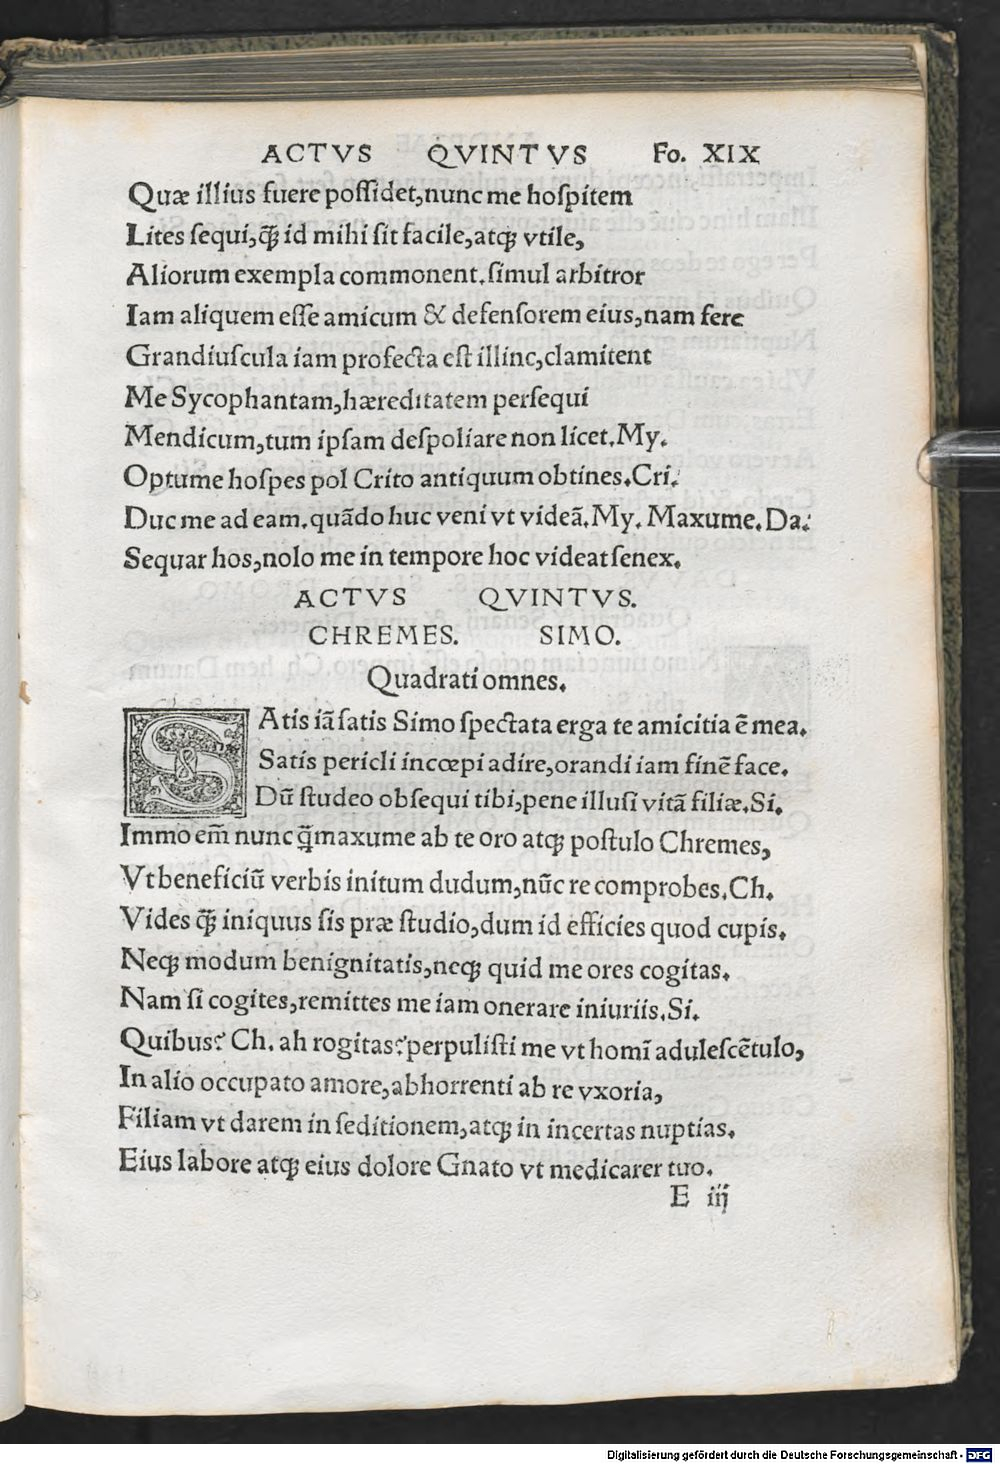 ACTVS QVINTVS Fo. XIX
Quæ illius fuere poſſidet,nunc me hoſpitem
Lites ſequi,ꝙ̃ id mihi ſit facile,atqꝫ vtile,
Aliorum exempla commonent.ſimul arbitror
Iam aliquem eſſe amicum & defenſorem eius,nam fere
Grandiuſcula iam profecta eſt illinc,clamitent
Me Sycophantam,hæreditatem perſequi
Mendicum,tum ipſam deſpoliare non licet.My.
Optume hoſpes pol Crito antiquum obtines.Cri.
Duc me ad eam.quãdo huc veni vt videã.My. Maxume.Da.
Sequar hos,nolo me in tempore hoc videat ſenex.
ACTVS QVINTVS.
CHREMES. SIMO.
Quadrati omnes.
SAtis iã ſatis Simo ſpectata erga te amicitia ẽ mea.
Satis pericli incœpi adire,orandi iam finẽ face.
Dũ ſtudeo obſequi tibi,pene illuſi vitã filiæ.Si.
Immo em̃ nunc q̃maxume ab te oro atqꝫ poſtulo Chremes,
Vt beneficiũ verbis initum dudum,nũc re comprobes.Ch.
Vides ꝙ̃ iniquus ſis præ ſtudio,dum id efficies quod cupis.
Neqꝫ modum benignitatis,neqꝫ quid me ores cogitas.
Nam ſi cogites,remittes me iam onerare iniuriis.Si.
Quibus? Ch. ah rogitas?perpuliſti me vt homĩ aduleſcẽtulo,
In alio occupato amore,abhorrenti ab re vxoria,
Filiam vt darem in ſeditionem,atqꝫ in incertas nuptias.
Eius labore atqꝫ eius dolore Gnato vt medicarer tuo.
E iij
Digitalisierung gefördert durch die Deutsche Forschungsgemeinschaft - DFG